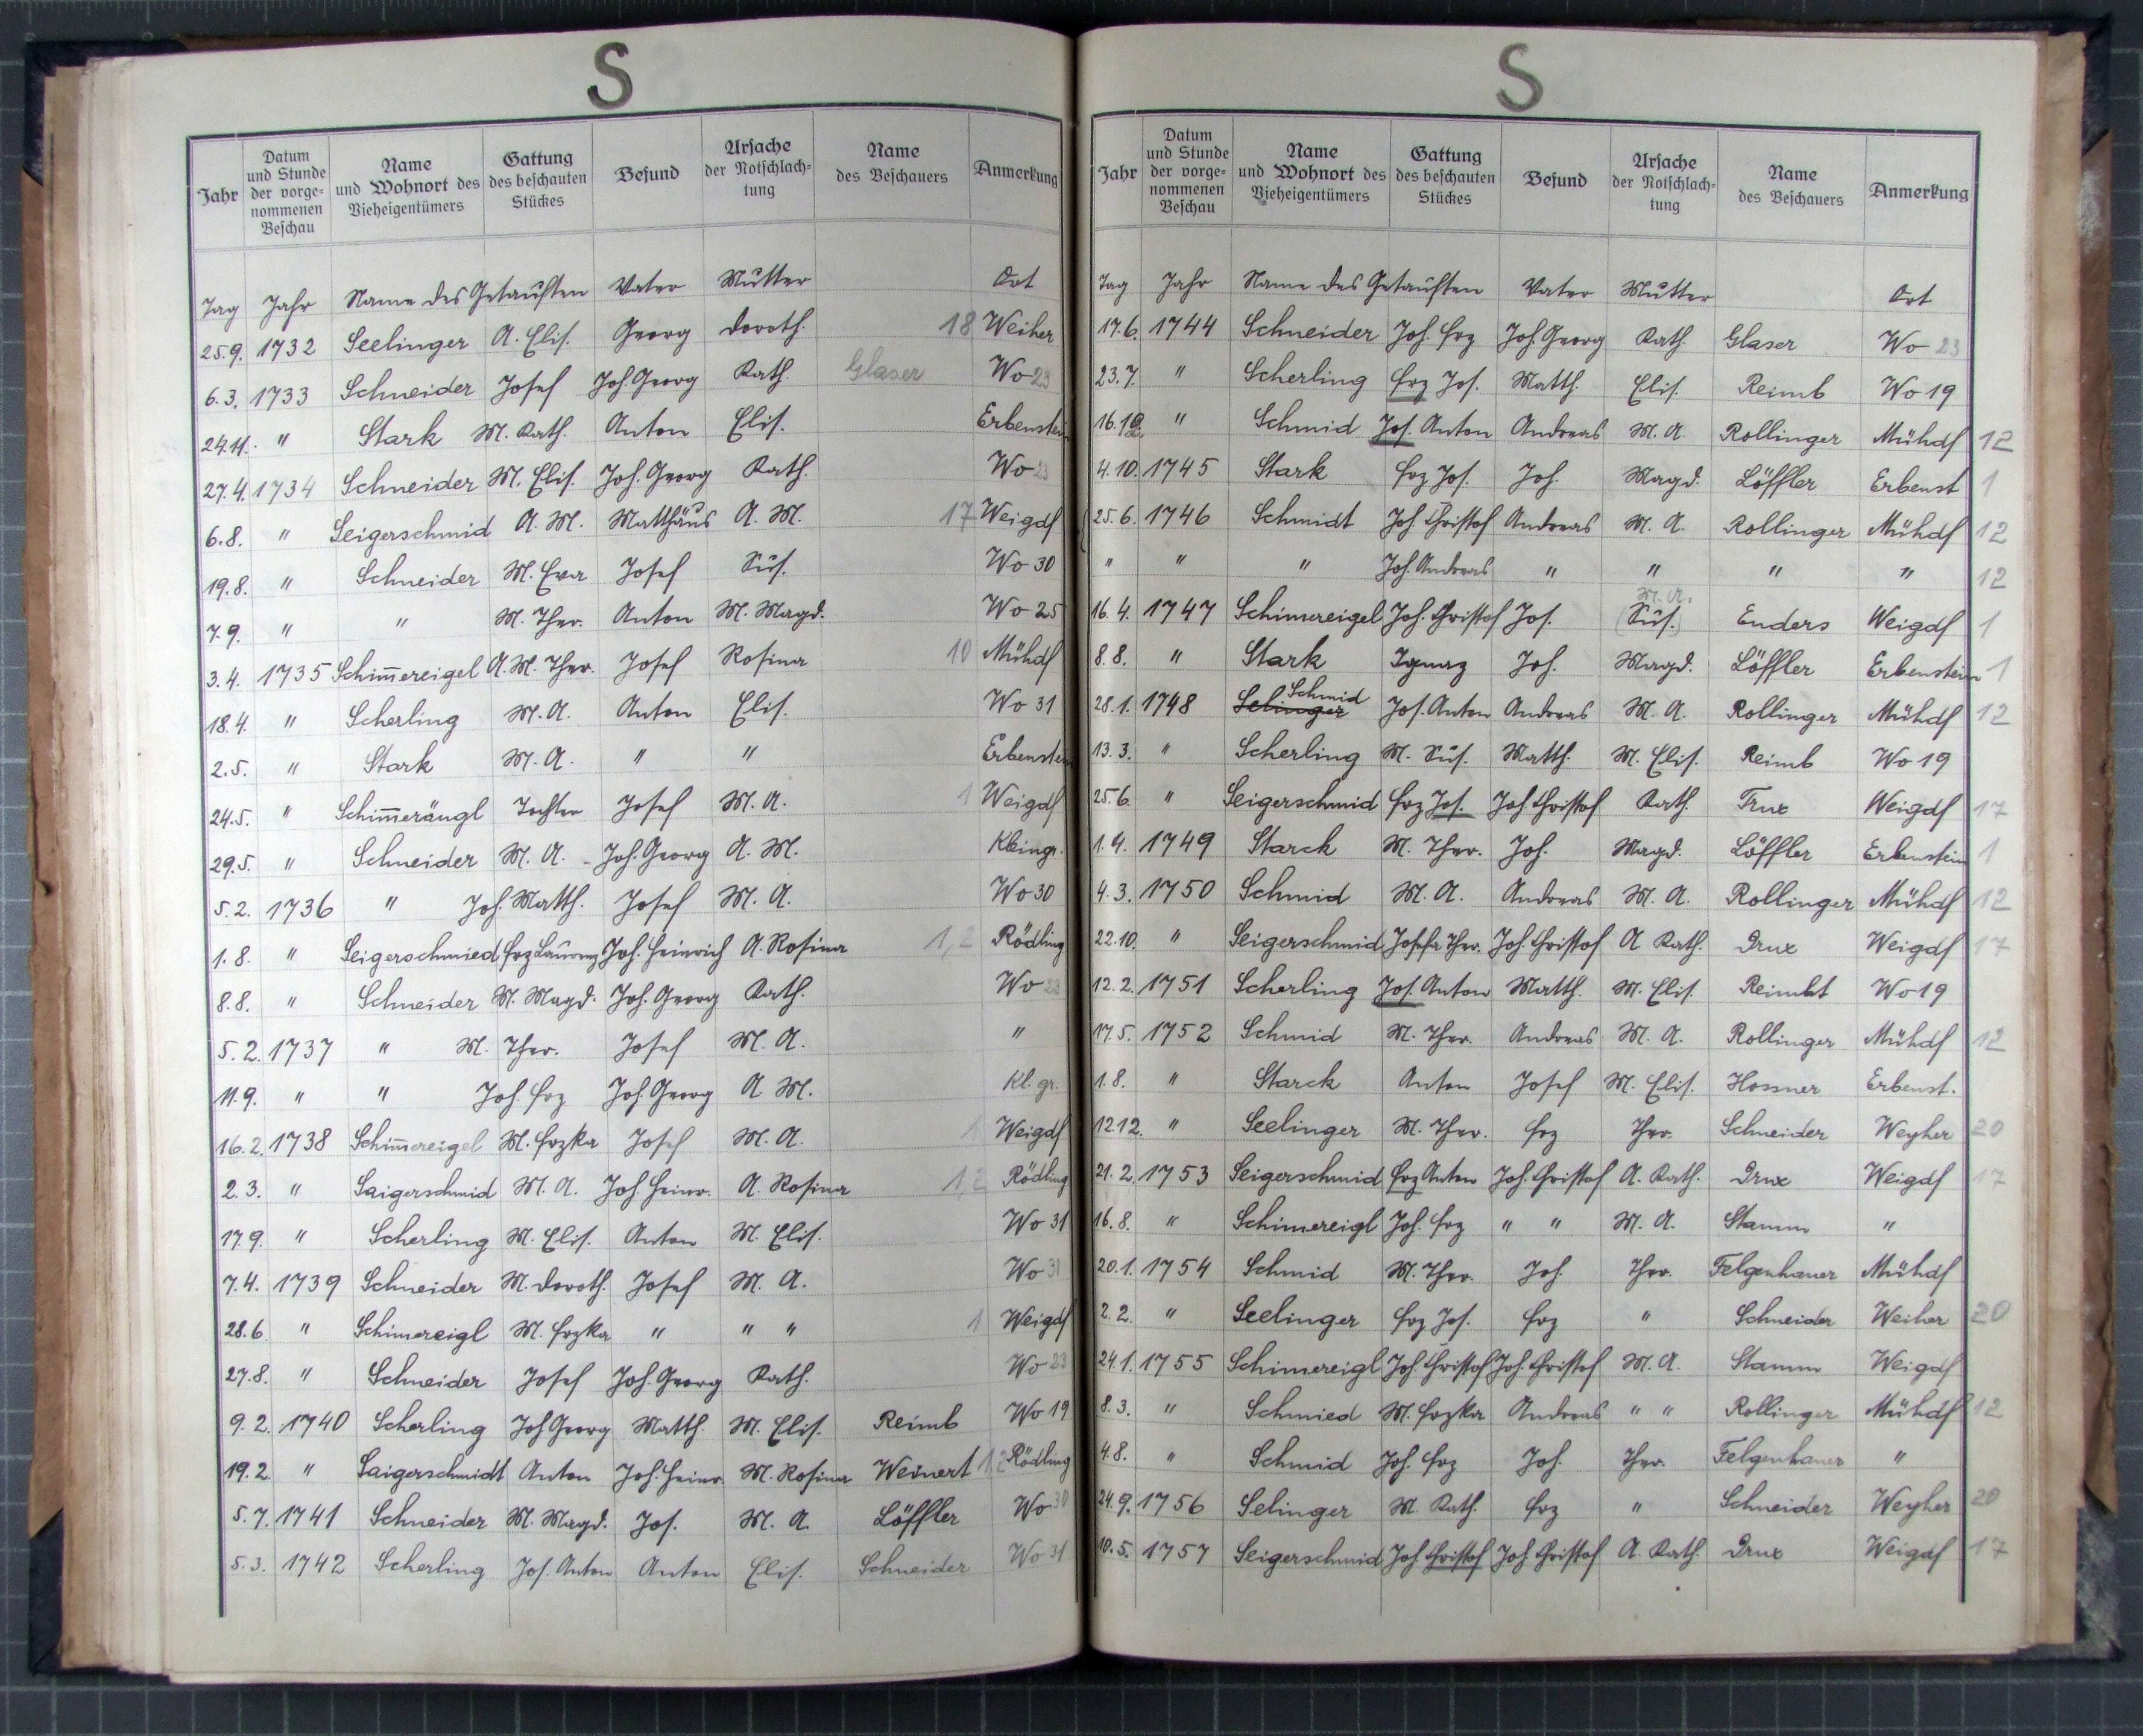 S
Jahr | Datum und Stunde der vorge-nommenen Beschau | Name und Wohnort des Vieheigentümers | Gattung des beschauten Stückes | Befund | Ursache der Notschlach-tung | Name des Beschauers | Anmerkung
Tag Jahr Name des Getauften Vater Mutter Ort
25.9. 1732 Seelinger A. Elis. Georg Doroth. 18 Weiher
6.3. 1733 Schneider Josef Joh. Georg Kath. Glaser Wo 23
24.11. " Stark M. Kath. Anton Elis. Erbenstein
27.4. 1734 Schneider M. Elis. Joh. Georg Kath. Wo 23
6.8. " Seigerschmid A. M. Matthäus A. M. 17 Weigdf
19.8. " Schneider M. Eva Josef Sus. Wo 30
7.9. " " M. Ther. Anton M. Magd. Wo 25
3.4. 1735 Schim̅ereigel A. M. Ther. Josef Rosina 10 Mühdf
18.4. " Scherling M. A. Anton Elis. Wo 31
2.5. " Stark M. A. " " Erbenstein
24.5. " Schim̅erängl Tochter Josef M. A. 1 Weigdf
29.5. " Schneider M. A. - Joh. Georg A. M. Kleingr.
5.2. 1736 " Joh. Matth. Josef M. A. Wo 30
1.8. " Seigerschmied Frz Laurenz Joh. Heinrich A. Rosina 1,2 Rödling
8.8. " Schneider M. Magd. Joh. Georg Kath. Wo 23
5.2. 1737 " M. Ther. Josef M. A. "
11.9. " " Joh. Frz Joh. Georg A. M. Kl. gr.
16.2. 1738 Schim̅ereigel M. Frzka Josef M. A. 1 Weigdf
2.3. " Saigerschmid M. A. Joh. Heinr. A. Rosina 1,2 Rödling
17.9. " Scherling M. Elis. Anton M. Elis. Wo 31
7.4. 1739 Schneider M. Doroth. Josef M. A. Wo 31
28.6. " Schimereigl M. Frzka " " " 1 Weigdf
27.8. " Schneider Josef Joh. Georg Kath. Wo 23
9.2. 1740 Scherling Joh Georg Matth. M. Elis. Reimb Wo 19
19.2. " Saigerschmidt Anton Joh. Heinr. M. Rosina Weinert 12 Rödling
5.7. 1741 Schneider M. Magd. Jos. M. A. Löffler Wo 30
5.3. 1742 Scherling Jos. Anton Anton Elis. Schneider Wo 31
S
Jahr | Datum und Stunde der vorge-nommenen Beschau | Name und Wohnort des Vieheigentümers | Gattung des beschauten Stückes | Befund | Ursache der Notschlach-tung | Name des Beschauers | Anmerkung
Tag Jahr Name des Getauften Vater Mutter Ort
17.6. 1744 Schneider Joh. Frz Joh. Georg Kath. Glaser Wo 23
23.7. " Scherling Frz Jos. Matth. Elis. Reimb Wo 19
16.12. " Schmid Jos. Anton Andreas M. A. Rollinger Mühdf 12
4.10. 1745 Stark Frz Jos. Joh. Magd. Löffler Erbenst 1
25.6. 1746 Schmidt Joh. Christof Andreas M. A. Rollinger Mühdf 12
" " " Joh. Andreas " " " " 12
16.4. 1747 Schimereigel Joh. Christof Jos. M. A. (Sus.) Enders Weigdf 1
8.8. " Stark Ignaz Joh. Magd. Löffler Erbenstein 1
28.1. 1748 Selinger Schmid Jos. Anton Andreas M. A. Rollinger Mühdf 12
13.3. " Scherling M. Sus. Matth. M. Elis. Reimb Wo 19
25.6. " Seigerschmid Frz Jos. Joh. Christof Kath. Trux Weigdf 17
1.4. 1749 Starck M. Ther. Joh. Magd. Löffler Erbenstein 1
4.3. 1750 Schmid M. A. Andreas M. A. Rollinger Mühdf 12
22.10. " Seigerschmid Josefa Ther. Joh. Christof A Kath. Drux Weigdf 17
12.2. 1751 Scherling Jos. Anton Matth. M. Elis. Reimbt Wo 19
17.5. 1752 Schmid M. Ther. Andreas M. A. Rollinger Mühdf 12
1.8. " Starck Anton Josef M. Elis. Hossner Erbenst.
12.12. " Seelinger M. Ther. Frz Ther. Schneider Weyher 20
21.2. 1753 Seigerschmid Frz Anton Joh. Christof A. Kath. Drux Weigdf 17
16.8. " Schimereigl Joh. Frz " " M. A. Stamm "
20.1. 1754 Schmid M. Ther. Joh. Ther. Felgenhauer Mühdf
2.2. " Seelinger Frz Jos. Frz " Schneider Weiher 20
24.1. 1755 Schimereigl Joh. Christof Joh. Christof M. A. Stamm Weigdf
8.3. " Schmied M. Frzka Andreas " " Rollinger Mühdf 12
4.8. " Schmid Joh. Frz Joh. Ther. Felgenhauer "
24.9. 1756 Selinger M. Kath. Frz " Schneider Weyher 20
10.5. 1757 Seigerschmid Joh. Christof Joh. Christof A. Kath. Drux Weigdf 17